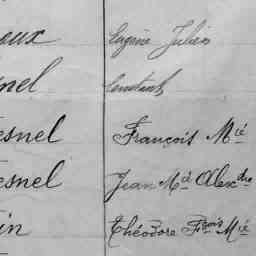 eux Eugène Julien
nel Constant
esnel François Mié
esnel Jean Mié Alexdre
in Théodore Fçois Mié